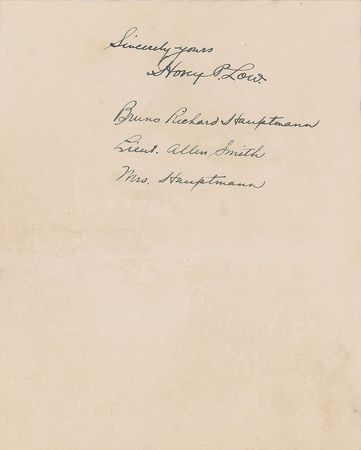 Sincerely yours
Hovey P. Low.
Bruno Richard Hauptmann
Lieut. Allen Smith
Mrs. Hauptmann